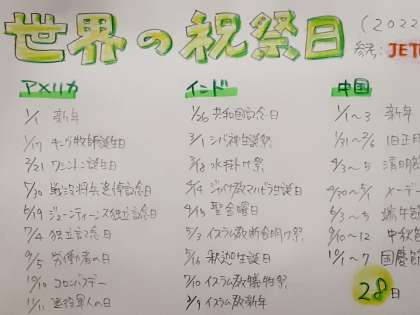 世界の祝祭日
(2022
参考:JET
アメリカ
1/1 新年
1/17 キング牧師誕生日
2/21 ワシントン誕生日
5/30 戦没将兵追悼記念日
6/19 ジューンティーンス独立記念日
7/4 独立記念日
9/5 労働者の日
10/10 コロンバスデー
11/11 退役軍人の日
インド
1/26 共和国記念日
3/1 シバ神生誕祭
3/18 水掛け祭
4/14 ジャイナ教マハビラ生誕日
4/15 聖金曜日
5/3 イスラム教断食明け祭
5/16 釈迦生誕日
7/10 イスラム教犠牲祭
8/9 イスラム教新年
中国
1/1~3 新年
1/31~2/6 旧正月
4/3~5 清明節
4/30~5/4 メーデー
6/3~5 端午節
9/10~12 中秋節
10/1~7 国慶節
28日